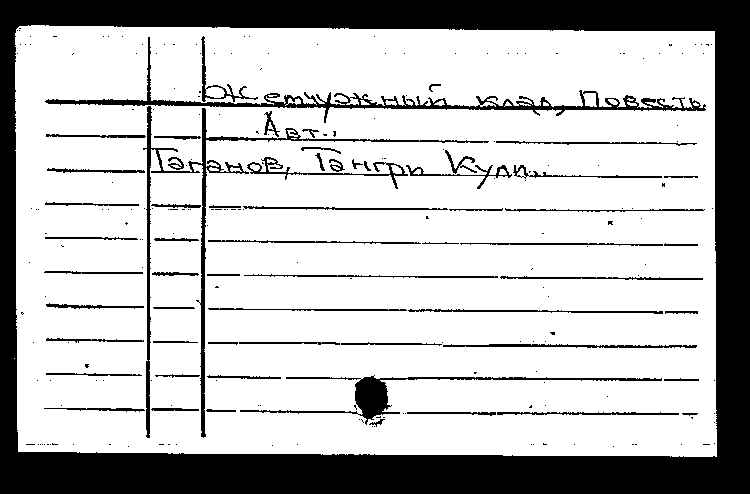 Жемчужный клад, Повесть.
Авт.:
Таганов, Тангри Кули..